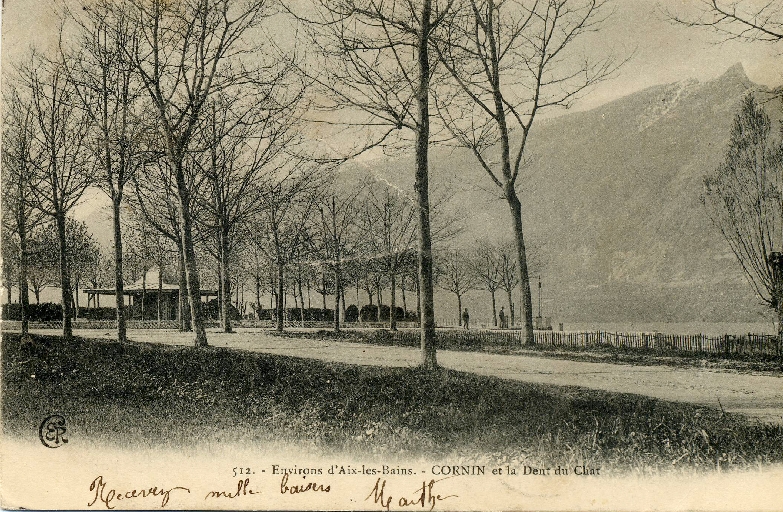 512. - Environs d'Aix-les-Bains. - CORNIN et la Dent du Chat
Recevez mille baisers Marthe